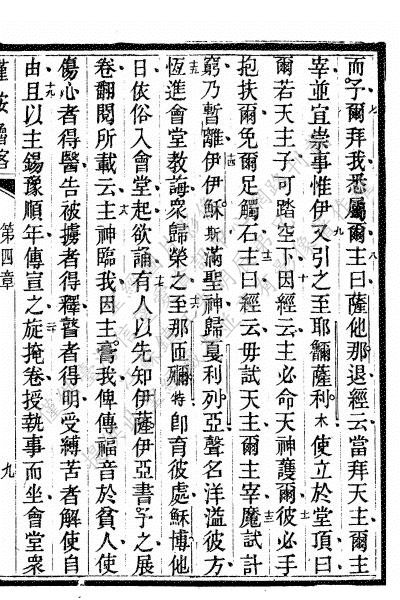 而予爾七拜我悉屬爾八主曰薩他那退經云當拜天主爾主
宰並宜崇事惟伊九又引之至耶穪薩利木使立於堂頂曰
爾若天主子可踏空下十因經云主必命天神護爾十一彼必手
抱扶爾免爾足觸石十二主曰經云毋試天主爾主宰十三魔試計
窮乃暫離伊十四伊穌斯滿聖神歸戛利列亞聲名洋溢彼方
十五恆進會堂教誨衆歸榮之十六至那匝穪特即育彼處穌博他
日依俗入會堂起欲誦十七有人以先知伊薩伊亞書予之展
卷翻閱所載云十八主神臨我因主膏我俾傳福音於貧人使
傷心者得醫十九告被擄者得釋瞽者得明受縛苦者解使自
由且以主錫豫順年傳宣之二十旋掩卷授執事而坐會堂衆
第四章
九